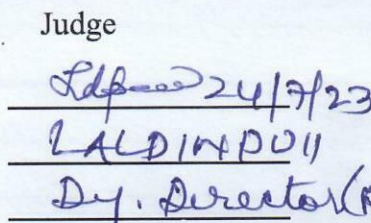 Judge
24/7/23
LALDINPUII
Dy. Director(